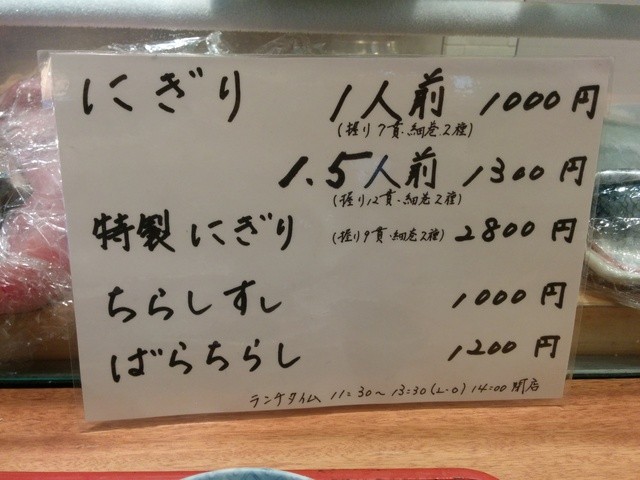 にぎり 1人前 1000円
(握り7貫・細巻2種)
1.5人前 1300円
(握り12貫・細巻2種)
特製にぎり (握り9貫・細巻2種) 2800円
ちらしすし 1000円
ばらちらし 1200円
ランチタイム 11:30〜13:30(L・O) 14:00閉店